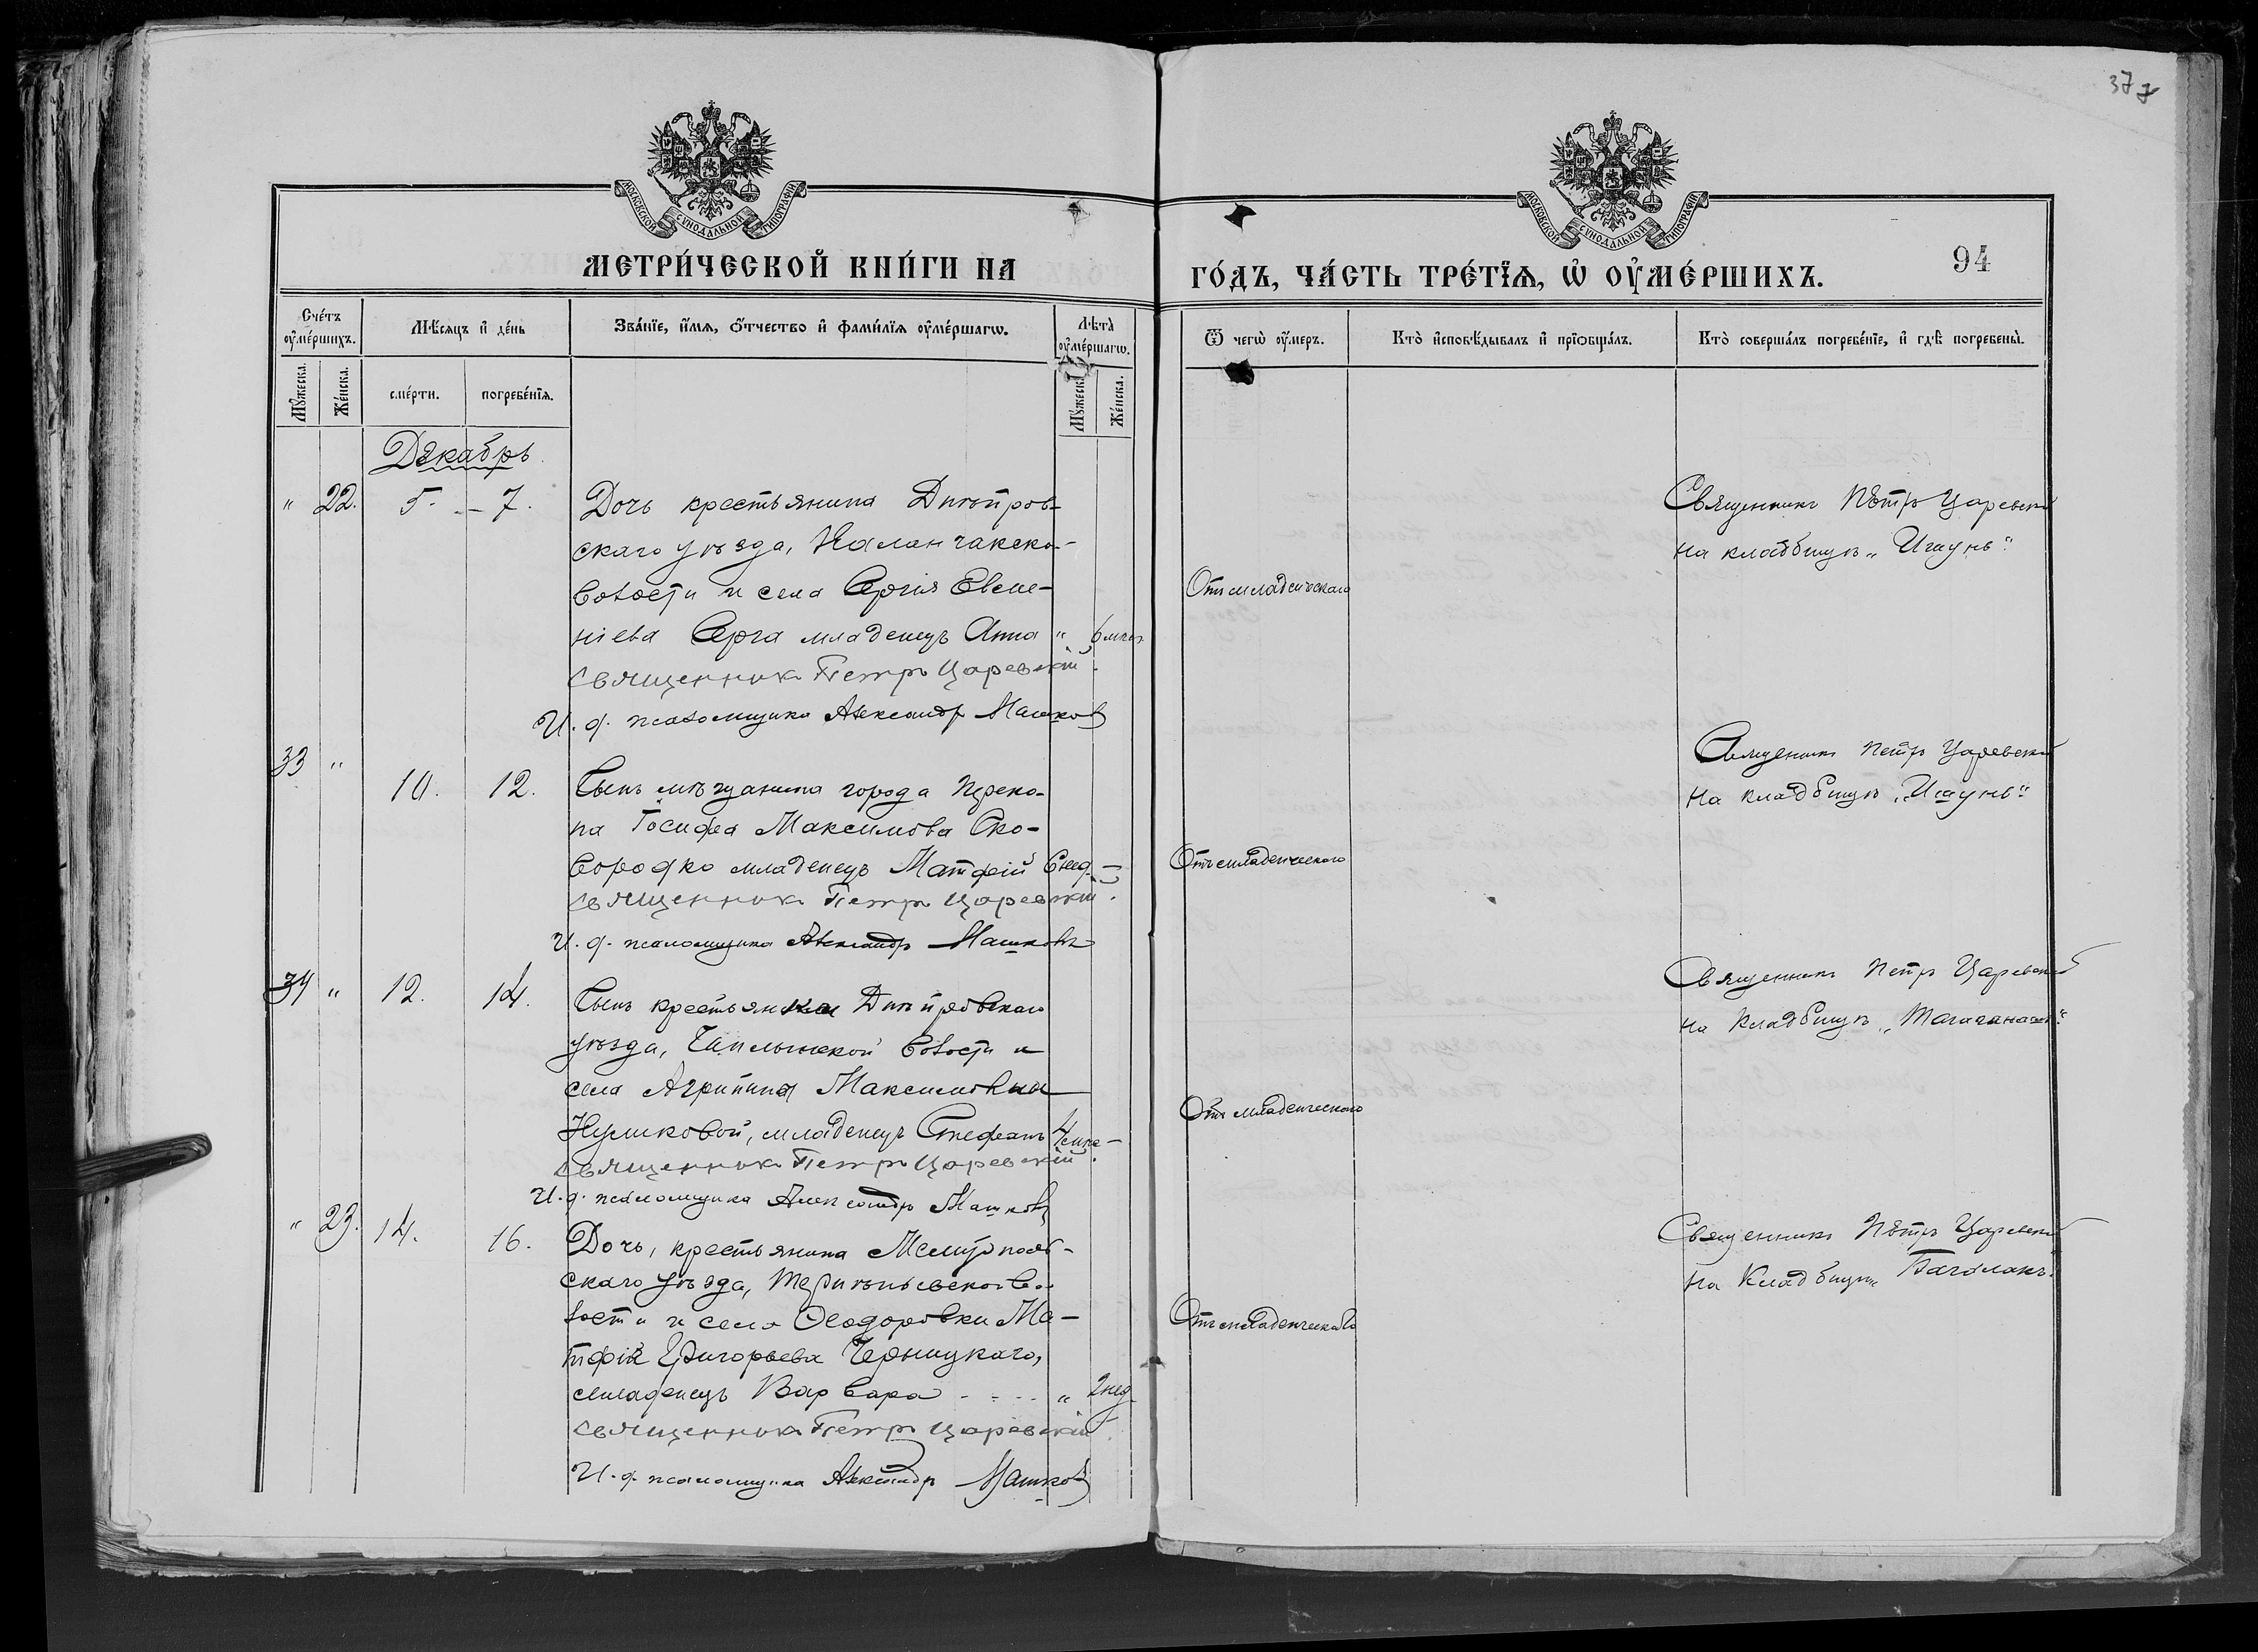 377
МОСКОВСКОЙ СУНОДАЛЬНОЙ ТИПОГРАФІИ
МОСКОВСКОЙ СУНОДАЛЬНОЙ ТИПОГРАФІИ
94
МЕТРИ́ЧЕСКОЙ КНИ́ГИ НА
ГО́ДЪ, ЧА́СТЬ ТРЕ́ТЇѦ, Ѡ҆ ОУ҆МЕ́РШИХЪ.
Сче́тъ оу҆ме́ршихъ.
Мꙋ́жеска.
Же́нска.
Мѣ́сяцъ и҆ де́нь
сме́рти.
погребе́нїѧ.
Зва́нїе, и҆́мѧ, ѻ҆́тчество и҆ фами́лїѧ оу҆ме́ршагѡ.
Лѣта̀ оу҆ме́ршагѡ.
Мꙋ́жеск.
Же́нска.
Ѿ чегѡ̀ оу҆́меръ.
Кто̀ и҆сповѣ́дывалъ и҆ прїѡбща́лъ.
Кто̀ соверша́лъ погребе́нїе, и҆ гдѣ̀ погребены̀.
Декабрь
" 22. 5. - 7.
Дочь крестьянина Днѣпров-
скаго уѣзда, Каланчакской
волости и села Сергія Евсе-
ніева Серга младенецъ Анна " 6 мѣс.
Священникъ Петръ Царевскій.
И. д. псаломщика Александръ Машковъ
Отъ младенческаго
Священникъ Петръ Царевскій
на кладбищѣ „Ишунь“.
33 " 10. 12.
Сынъ мѣщанина города Переко-
па Іосифа Максимова Ско-
вородко младенецъ Матфей 6 нед. -
Священникъ Петръ Царевскій.
И. д. псаломщика Александръ Машковъ
Отъ младенческаго
Священникъ Петръ Царевскій
на кладбищѣ „Ишунь“
34 " 12. 14.
Сынъ крестьянки Днѣпровскаго
уѣзда, Чаплинской волости и
села Агрипины Максимовны
Куликовой, младенецъ Стефанъ 4 мѣс. -
Священникъ Петръ Царевскій.
И. д. псаломщика Александръ Машковъ
Отъ младенческаго
Священникъ Петръ Царевскій
на кладбищѣ
" 23. 14. 16.
Дочь, крестьянина Мелитополь-
скаго уѣзда, во-
лости и села Ѳеодоровки Ма-
тфія Григорьева Черницкаго,
младенецъ Варвара - - - - " 2 нед.
Священникъ Петръ Царевскій.
И. д. псаломщика Александръ Машковъ
Отъ младенческаго
Священникъ Петръ Царевскій
на кладбищѣ